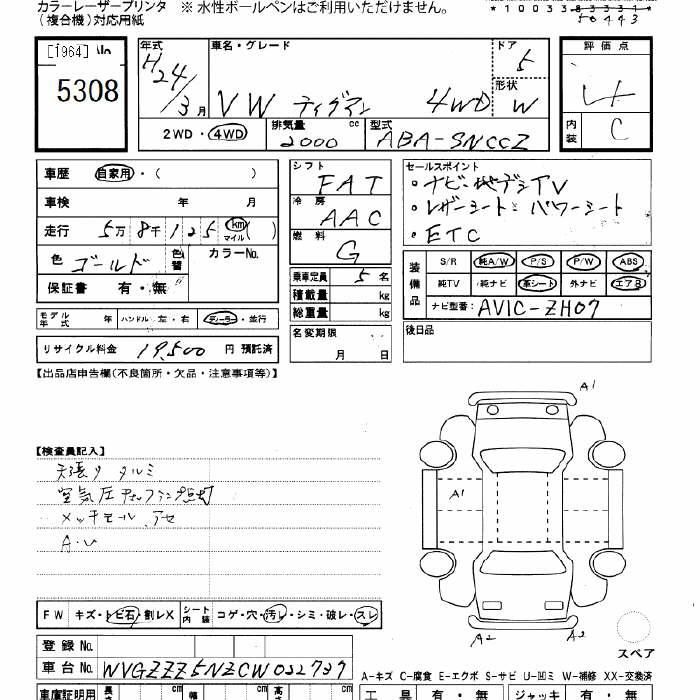 カラーレーザープリンタ ※ 水性ボールペンはご利用いただけません。
(複合機)対応用紙
[1964]
5308
年式 車名・グレード ドア 評価点
H24/3月 VW ティグアン 4WD 5
形状 W
4
内装 C
2WD ・ 4WD 排気量 2000 cc 型式 ABA-5NCCZ
車歴 自家用 ・( )
車検 年 月
走行 5万 8千 1 2 5 km マイル ( )
色 ゴールド 色替 カラーNo.
保証書 有・無
モデル年式 年 ハンドル 左・右 ディーラー・並行
リサイクル料金 19,500 円 預託済
シフト FAT
冷房 AAC
燃料 G
乗車定員 5 名
積載量 kg
総重量 kg
名変期限
月 日
セールスポイント
・ナビ・地デジTV
・レザーシート・パワーシート
・ETC
装備品 S/R 純A/W P/S P/W ABS
純TV 純ナビ 革シート 外ナビ エアB
ナビ型番: AVIC-ZH07
後日品
【出品店申告欄(不良箇所・欠品・注意事項等)】
【検査員記入】
天張りタルミ
A1
A1
A2
A2
スペア
FW キズ・トビ石・割レX シート内装 コゲ・穴・汚レ・シミ・破レ・スレ
登録 No.
車台 No. WVGZZZ5NZCW032737
A-キズ C-腐食 E-エクボ S-サビ U-凹ミ W-補修 XX-交換済
車庫証明用 長さ cm 幅 cm 高さ cm 工具 有・無 ジャッキ 有・無